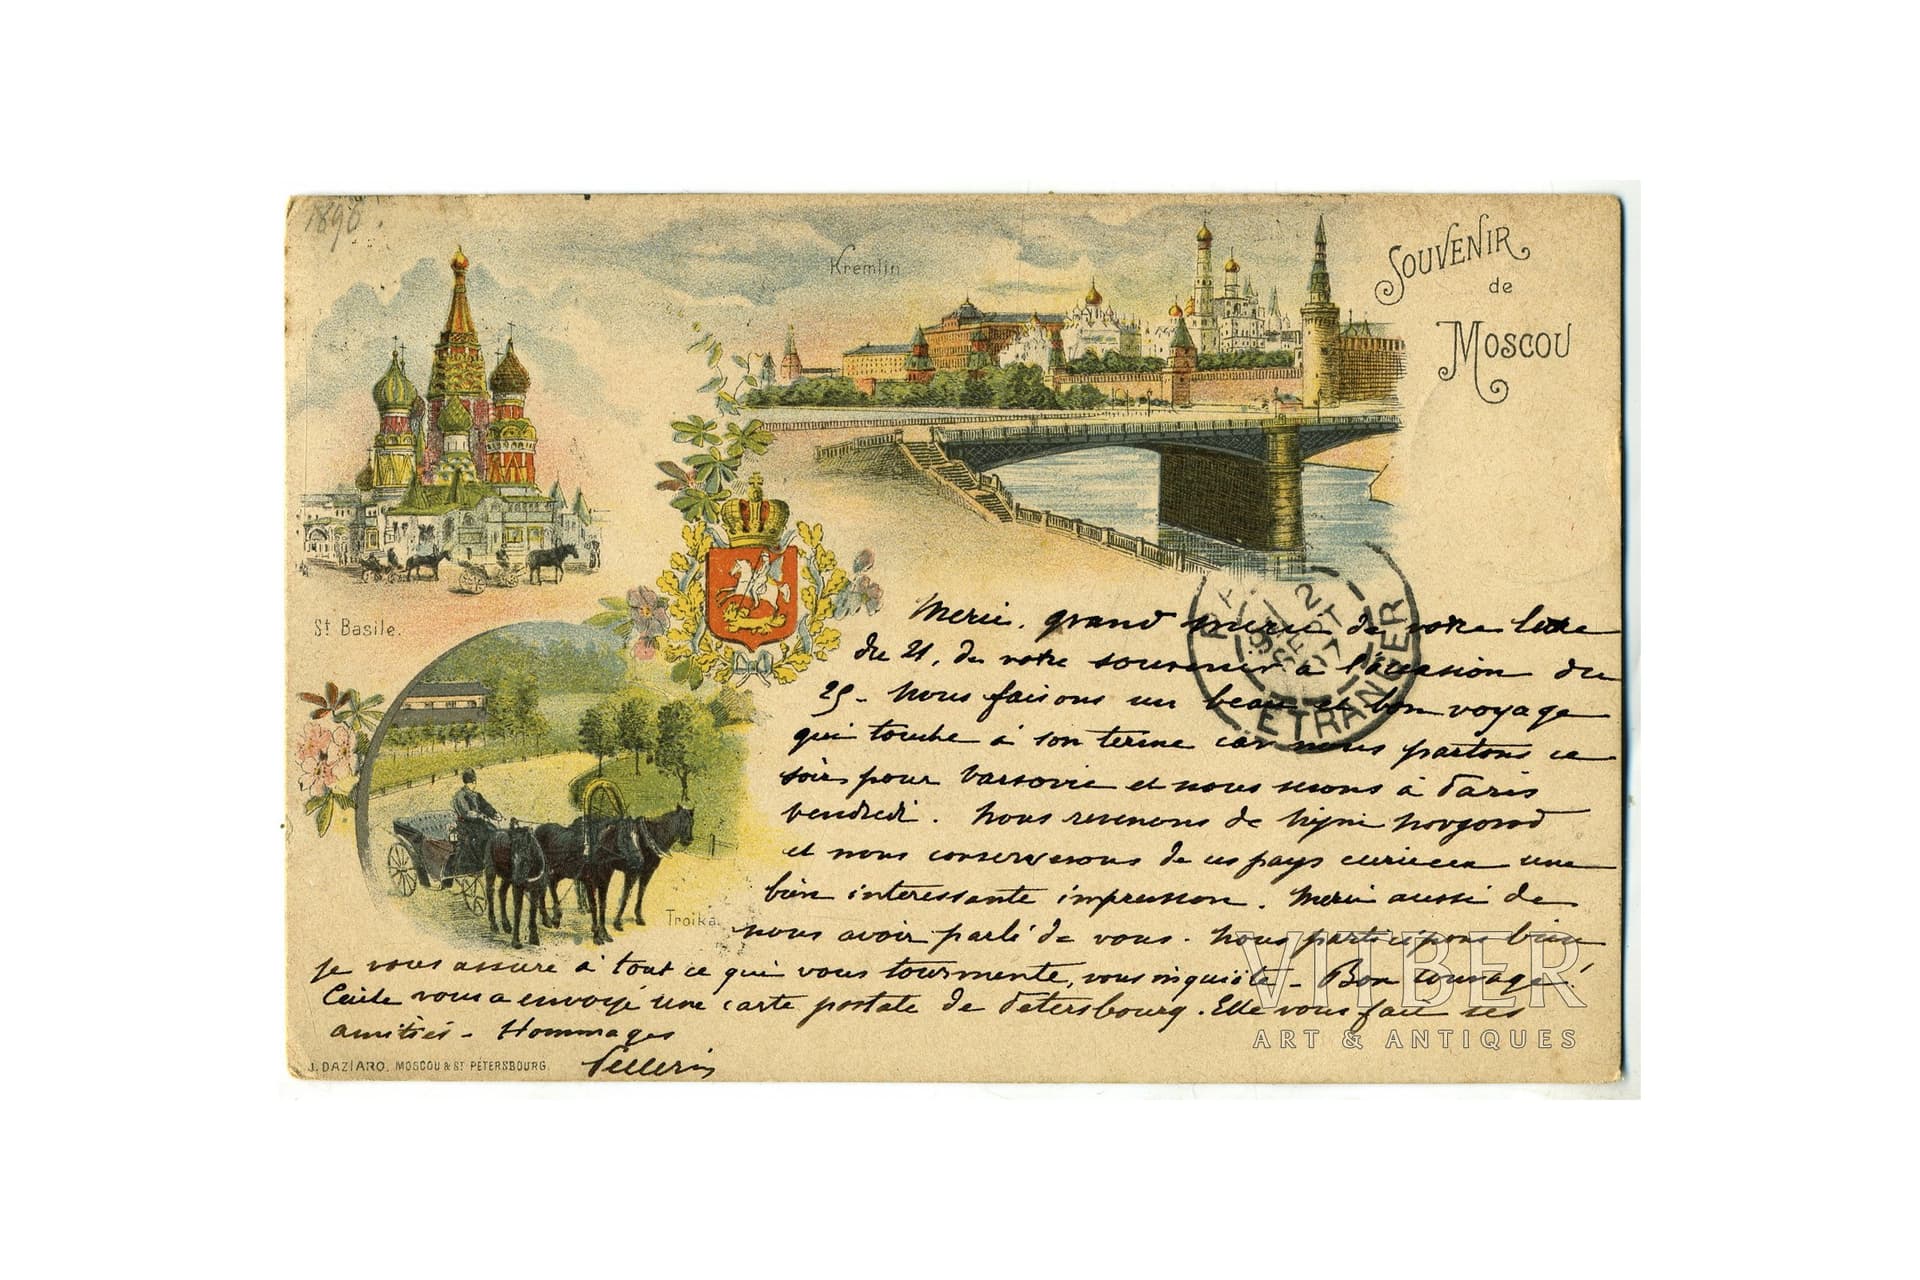 1896.
Kremlin
SOUVENIR
de
MOSCOU
St Basile.
Troika.
ETRANGER
2
SEPT
97
Merci, grand merci de votre lettre
du 21, de votre souvenir à l'occasion du
25 - Nous faisons un beau et bon voyage
qui touche à son terme car nous partons ce
soir pour Varsovie et nous serons à Paris
vendredi. Nous revenons de Nijni Novgorod
et nous conserverons de ces pays curieux une
bien interessante impression. Merci aussi de
nous avoir parlé de vous. Nous participons bien
je vous assure à tout ce qui vous tourmente, vous inquiète - Bon courage!
Cécile vous a envoyé une carte postale de Petersbourg. Elle vous fait ses
amitiés - Hommages
Pellerin
J. DAZIARO, MOSCOU & ST PÉTERSBOURG.
VITBER
ART & ANTIQUES